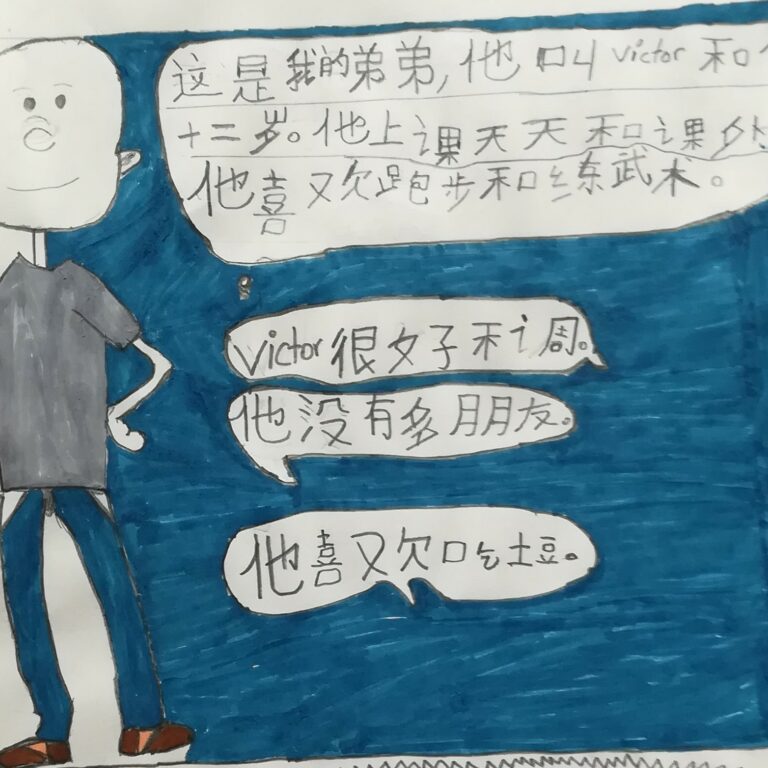 这是我的弟弟,他叫 Victor 和
十二岁。他上课天天和课外
他喜欢跑步和练武术。
Victor 很好和调。
他没有多朋友。
他喜欢吃土豆。